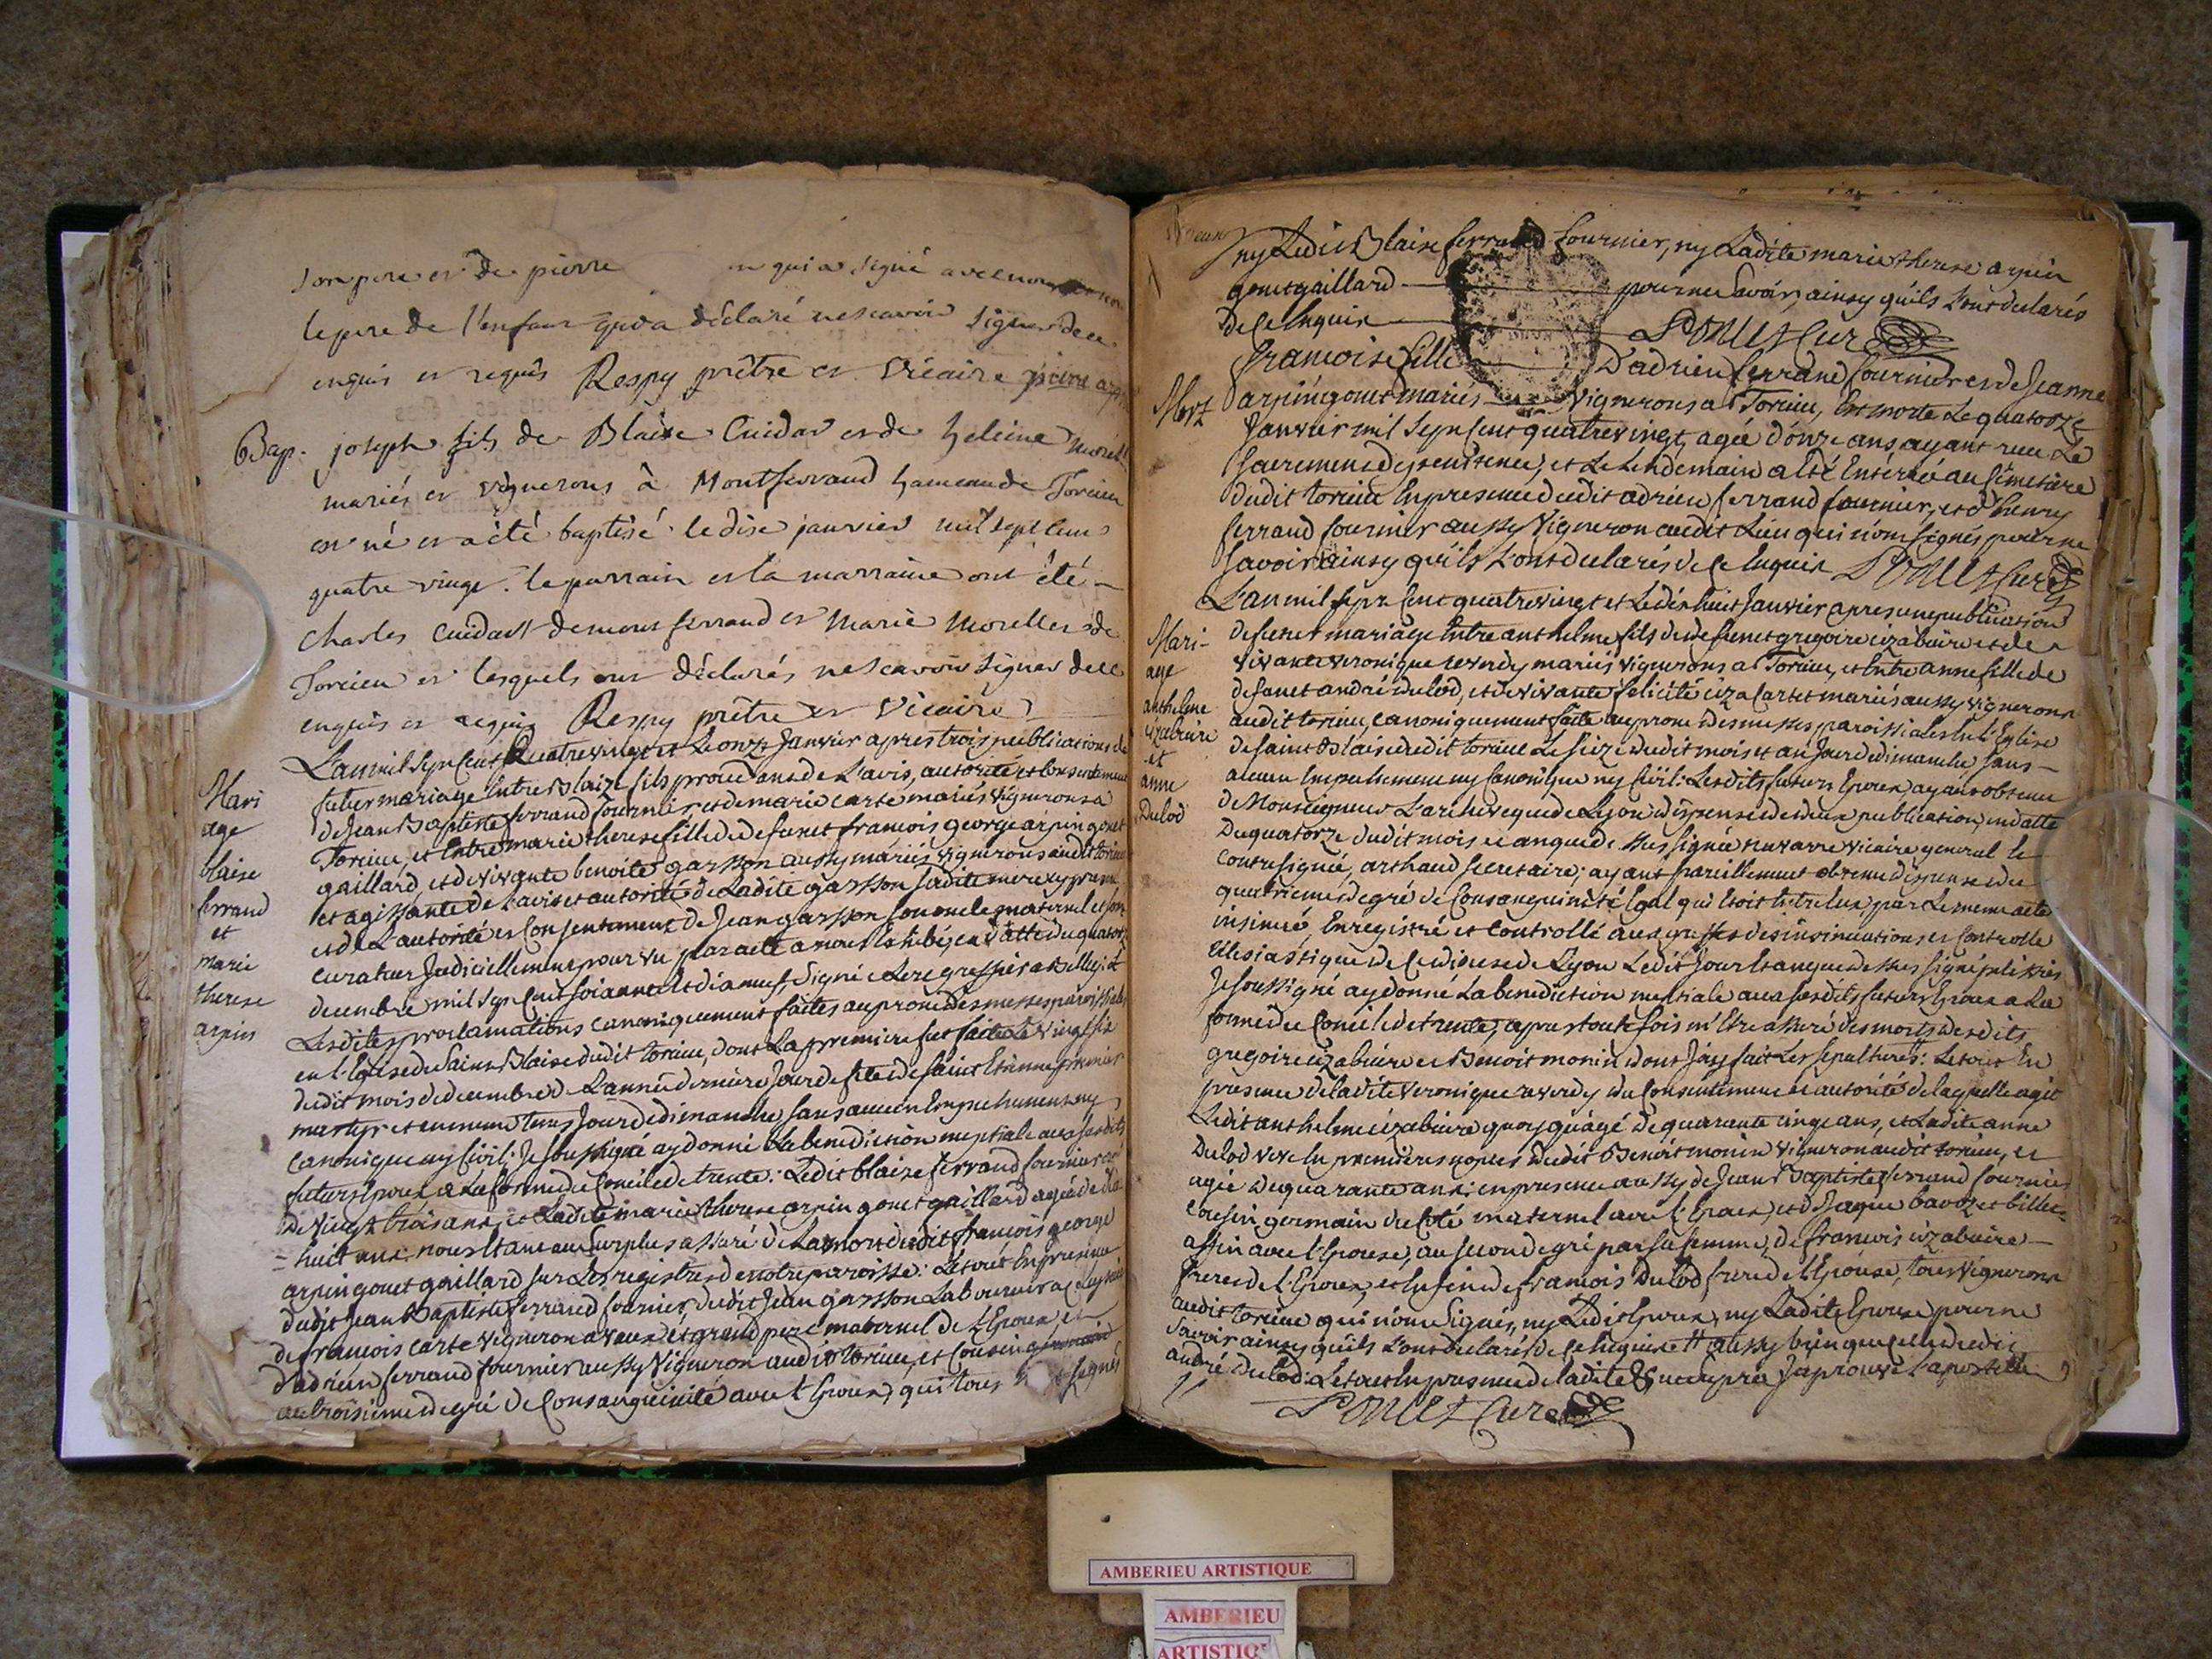 son pere et de pierre qui a signé avec nous
le pere de l'enfant qui a déclaré ne scavoir signer de ce
enquis et requis Respy prêtre et Vicaire
Bap. joseph fils de Blaise Cuidat et de heleine Morel
mariés et vignerons à Montferrand hameau de Torcieu
est né et a été baptisé le dix janvier mil sept cent
quatre vingt. le parrain et la marraine ont été
charles Cuidat de mont ferrand et Marie Morellet de
Torcieu et lesquels ont déclarés ne scavoir signer de ce
enquis et requis Respy prêtre et Vicaire
L'an mil sept cent quatre vingt et le onze Janvier apres trois publications de
Mari
age
blaise
ferrand
et
marie
therese
arpin
futur mariage Entre Blaize fils procedant de L'avis, autorité et Consentement
de Jean Baptiste ferrand fournier, et de marie carte mariés vignerons a
Torcieu, et Entre marie therese fille de defunct francois george arpin gonet
gaillard, et de vivante benoite gasson aussy mariés vignerons audit torcieu
et agissante de l'avis et autorité de Ladite gasson sadite mere cy presente
et de L'autorité et Consentement de Jean gasson son oncle maternel et son
curateur Judiciellement pourvu par acte a nous Exhibé, en datte du quatorze
decembre mil sept cent soixante et dix neuf, Signé Lere greffier a Belley; et
Lesdites proclamations canoniquement faites au prone des messes paroissiales
en l'Eglise de Saint Blaise dudit torcieu, dont La premiere fut faite Le vingt six
dudit mois de decembre de L'année derniere Jour de fete de saint Etienne premier
martyr et en meme tems Jour de dimanche sans aucun Empechement ny
Canonique ny Civil; Je soussigné ay donné La benediction nuptiale aux susdits
futurs Epoux a la forme du Concile de trente: Ledit blaize ferrand fournier agé
de vingt trois ans, et Ladite marie therese arpin gonet gaillard agée de dix
= huit ans: nous Etant au surplus assuré de La mort dudit francois george
arpin gonet gaillard sur Les registres de notre paroisse: Le tout En presence
dudit Jean Baptiste ferrand fournier, dudit Jean gasson Laboureur a
de francois carte vigneron a vaux et grand pere maternel de l'Epoux, et
d'adrien ferrand fournier aussy vigneron audit torcieu, et Cousin germain
au troisieme degré de Consanguinité avec l'Epoux, qui tous signés
ny Ledit Blaise ferrand fournier, ny Ladite marie therese arpin
gonet gaillard pour ne savoir, ainsy qu'ils L'ont declarés
de Ce Enquis Poncet Curé
Mort
francoise fille D'adrien ferrand fournier et de Jeanne
arpin gonet mariés vignerons a Torcieu, Est morte Le quatorze
Janvier mil Sept Cent quatre vingt, agée d'onze ans, ayant recu Le
sacrement de penitence, et Le Lendemain a Eté Enterrée au Cimetiere
dudit torcieu En presence dudit adrien ferrand fournier, et d'henry
ferrand fournier aussy vigneron audit Lieu qui n'ont signés pour ne
savoir ainsy qu'ils L'ont declarés de Ce Enquis Poncet Curé
Mari-
age
anthelme
cizabuire
et
anne
Dulod
L'an mil sept Cent quatre vingt et Le dix huit Janvier apres une publication
de futur mariage Entre anthelme fils de defunct gregoire cizabuire et de
vivante veronique reverdy mariés vignerons a Torcieu, et Entre anne fille de
defunct andré dulod, et de vivante felicité cizacartet mariés aussy vignerons
audit torcieu, canoniquement faite au prone des messes paroissiales En l'Eglise
de saint Blaise dudit torcieu Le seize dudit mois et an Jour de dimanche sans
aucun Empechement ny Canonique ny Civil: Lesdits futurs Epoux ayant obtenu
de Monseigneur L'archeveque de Lyon dispense de deux publication, en datte
du quatorze dudit mois et an que dessus signée navarre vicaire general et
contresignée, arthaud secretaire; ayant pareillement obtenu dispense du
quatrieme degré de Consanguinité Egal qui Etoit Entre Eux par Le meme acte
insinué, Enregistré et Controllé aux greffes des insinuations et Controlle
Eclesiastique de Ce diocese de Lyon Ledit Jour et an que dessus signé
Je soussigné ay donné La benediction nuptiale aux susdits futurs Epoux a La
forme du Concile de trente, apres toutefois m'Etre assuré des morts desdits
gregoire cizabuire et Benoit monin dont J'ay fait Les sepultures: Le tout En
presence de ladite veronique reverdy du Consentement et autorité de laquelle agit
Ledit anthelme cizabuire quoyqu'agé de quarante cinq ans, et Ladite anne
Dulod veuve En premieres nopces dudit Benoit monin vigneron audit torcieu, et
agée de quarante ans: en presence aussy de Jean Baptiste ferrand fournier
Cousin germain du Coté maternel avec l'Epoux, et d'Jaque bavozet billet
affin avec l'Epouse, au second degré par sa femme, de francois cizabuire
freres de l'Epoux, et Enfin de francois Dulod frere de l'Epouse, tous vignerons
audit torcieu qui n'ont signés, ny Ledit Epoux, ny Ladite Epouse pour ne
savoir ainsy qu'ils L'ont declarés de Ce Enquis # aussy bien que celle dudit
andré Dulod: Le tout En presence de ladite & J'aprouve l'apostille
Poncet Curé
AMBERIEU ARTISTIQUE
AMBERIEU
ARTISTIQ